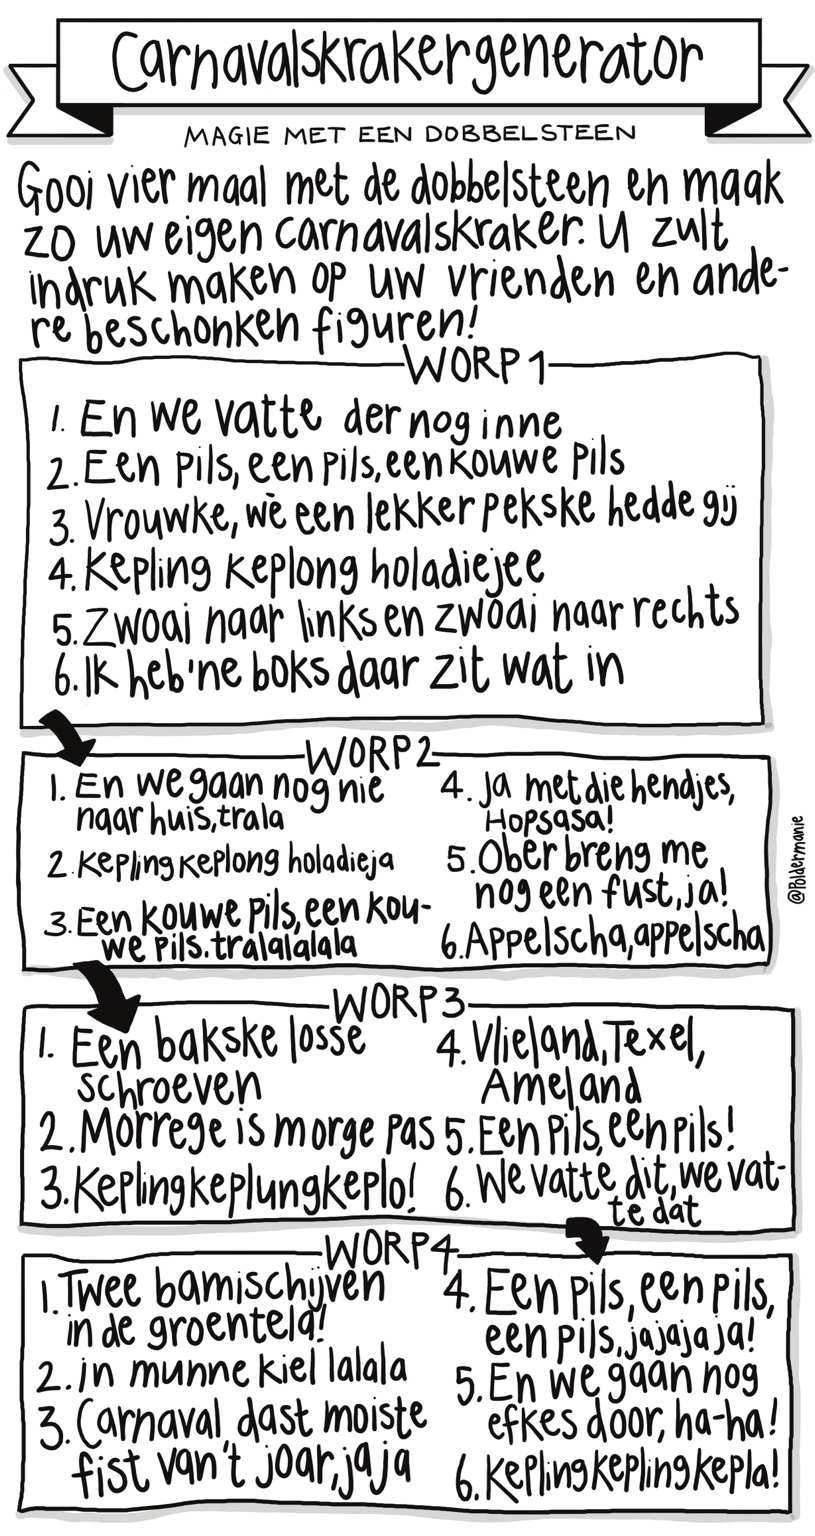 Carnavalskrakergenerator
MAGIE MET EEN DOBBELSTEEN
Gooi vier maal met de dobbelsteen en maak
zo uw eigen carnavalskraker. U zult
indruk maken op uw vrienden en ande-
re beschonken figuren!
WORP 1
1. En we vatte der nog inne
2. Een pils, een pils, een kouwe pils
3. Vrouwke, wè een lekker pekske hedde gij
4. Kepling keplong holadiejee
5. Zwoai naar links en zwoai naar rechts
6. Ik heb 'ne boks daar zit wat in
WORP 2
1. En we gaan nog nie
naar huis, trala
2. Kepling keplong holadieja
3. Een kouwe pils, een kou-
we pils. tralalalala
4. Ja met die hendjes,
Hopsasa!
5. Ober breng me
nog een fust, ja!
6. Appelscha, appelscha
@Poldermanie
WORP 3
1. Een bakske losse
schroeven
2. Morrege is morge pas
3. Keplingkeplungkeplo!
4. Vlieland, Texel,
Ameland
5. Een pils, een pils!
6. We vatte dit, we vat-
te dat
WORP 4
1. Twee bamischijven
in de groentela!
2. in munne kiel lalala
3. Carnaval dast moiste
fist van 't joar, jaja
4. Een pils, een pils,
een pils, jajajaja!
5. En we gaan nog
efkes door, ha-ha!
6. Keplingkeplingkepla!